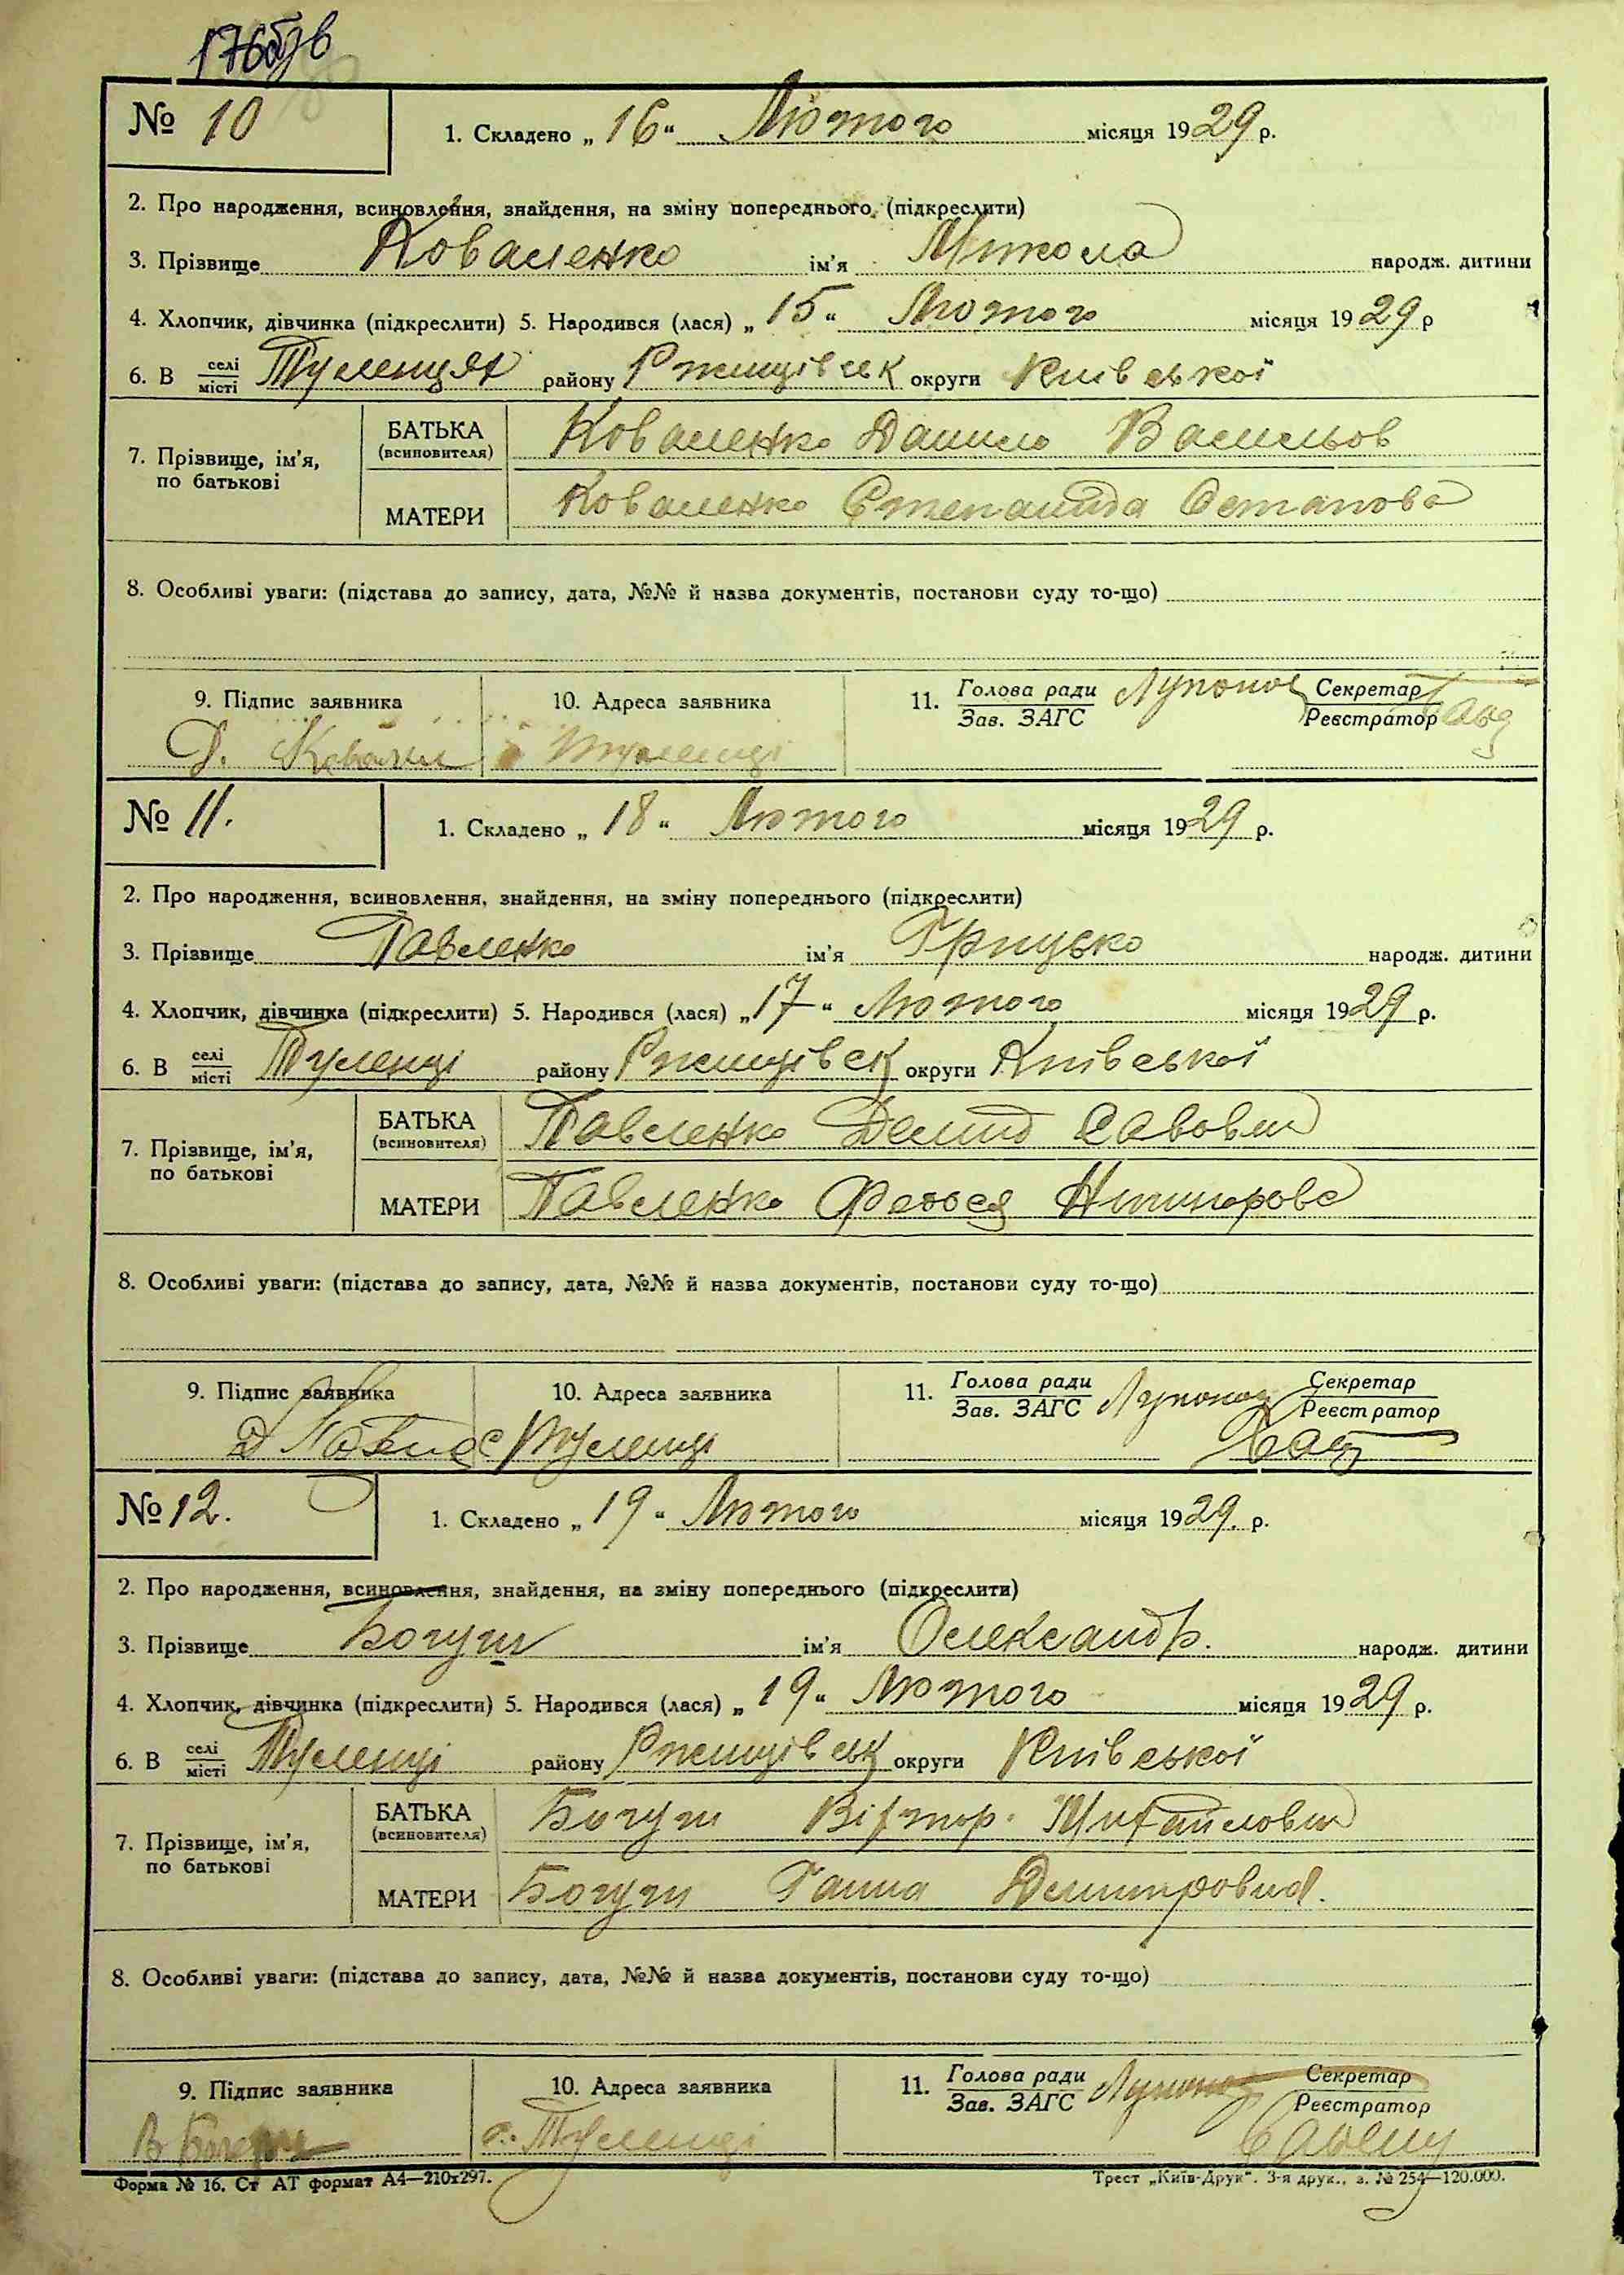 176зв
№ 10
1. Складено „16“ Лютого місяця 1929 р.
2. Про народження, всиновлення, знайдення, на зміну попереднього (підкреслити)
3. Прізвище Коваленко ім'я Микола народж. дитини
4. Хлопчик, дівчинка (підкреслити) 5. Народився (лася) „15“ Лютого місяця 1929 р
6. В селі/місті Туленцях району Ржищівськ округи Київської
7. Прізвище, ім'я, по батькові
БАТЬКА (всиновителя) Коваленко Данило Васильов
МАТЕРИ Коваленко Степанида Остапова
8. Особливі уваги: (підстава до запису, дата, №№ й назва документів, постанови суду то-що)
9. Підпис заявника 10. Адреса заявника 11. Голова ради/Зав. ЗАГС Секретар/Реєстратор
Д. Ковален Туленці
№ 11.
1. Складено „18“ Лютого місяця 1929 р.
2. Про народження, всиновлення, знайдення, на зміну попереднього (підкреслити)
3. Прізвище Павленко ім'я Грицько народж. дитини
4. Хлопчик, дівчинка (підкреслити) 5. Народився (лася) „17“ Лютого місяця 1929 р.
6. В селі/місті Туленці району Ржищівськ округи Київської
7. Прізвище, ім'я, по батькові
БАТЬКА (всиновителя) Павленко Демид Савович
МАТЕРИ Павленко Федося Ничипорова
8. Особливі уваги: (підстава до запису, дата, №№ й назва документів, постанови суду то-що)
9. Підпис заявника 10. Адреса заявника 11. Голова ради/Зав. ЗАГС Секретар/Реєстратор
Д Павле с Туленці
№ 12.
1. Складено „19“ Лютого місяця 1929. р.
2. Про народження, всиновлення, знайдення, на зміну попереднього (підкреслити)
3. Прізвище Богуш ім'я Олександр. народж. дитини
4. Хлопчик, дівчинка (підкреслити) 5. Народився (лася) „19“ Лютого місяця 1929 р.
6. В селі/місті Туленці району Ржищівськ округи Київської
7. Прізвище, ім'я, по батькові
БАТЬКА (всиновителя) Богуш Віктор Михайлович
МАТЕРИ Богуш Ганна Демитровна.
8. Особливі уваги: (підстава до запису, дата, №№ й назва документів, постанови суду то-що)
9. Підпис заявника 10. Адреса заявника 11. Голова ради/Зав. ЗАГС Секретар/Реєстратор
В Богуш с. Туленці
Форма № 16. Ст АТ формат А4—210х297. Трест „Київ-Друк“. 3-я друк., з. № 254—120.000.